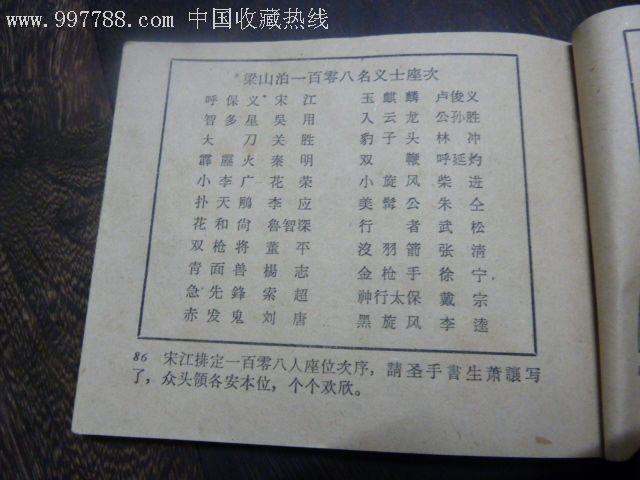 www.997788.com 中国收藏热线
梁山泊一百零八名义士座次
呼保义 宋江 玉麒麟 卢俊义
智多星 吳用 入云龙 公孙胜
大刀 关胜 豹子头 林冲
霹靂火 秦明 双鞭 呼延灼
小李广 花荣 小旋风 柴进
扑天鵰 李应 美髯公 朱仝
花和尙 魯智深 行者 武松
双枪将 董平 沒羽箭 张淸
青面兽 楊志 金枪手 徐宁
急先鋒 索超 神行太保 戴宗
赤发鬼 刘唐 黑旋风 李逵
86 宋江排定一百零八人座位次序，請圣手書生萧讓写
了，众头领各安本位，个个欢欣。